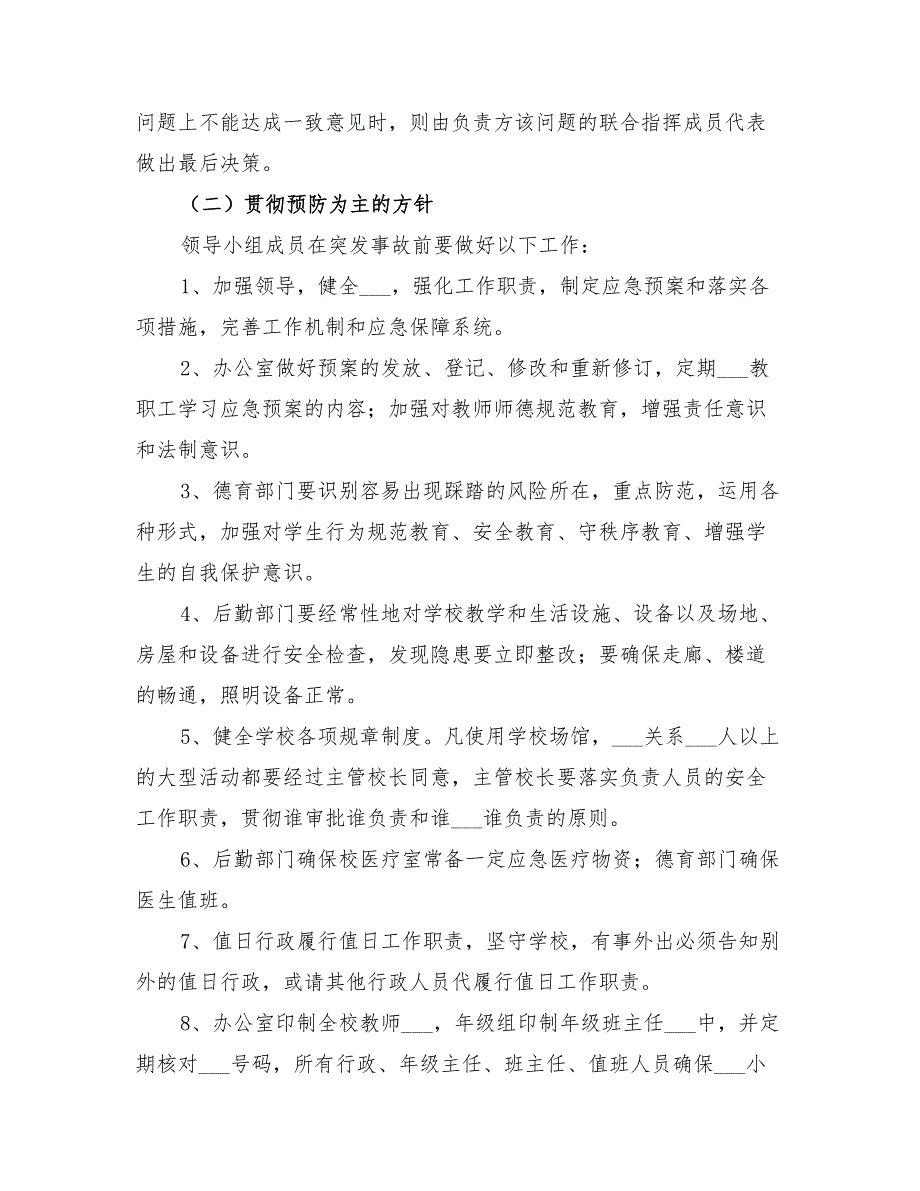 问题上不能达成一致意见时，则由负责方该问题的联合指挥成员代表
做出最后决策。
（二）贯彻预防为主的方针
领导小组成员在突发事故前要做好以下工作：
1、加强领导，健全___，强化工作职责，制定应急预案和落实各
项措施，完善工作机制和应急保障系统。
2、办公室做好预案的发放、登记、修改和重新修订，定期___教
职工学习应急预案的内容；加强对教师师德规范教育，增强责任意识
和法制意识。
3、德育部门要识别容易出现踩踏的风险所在，重点防范，运用各
种形式，加强对学生行为规范教育、安全教育、守秩序教育、增强学
生的自我保护意识。
4、后勤部门要经常性地对学校教学和生活设施、设备以及场地、
房屋和设备进行安全检查，发现隐患要立即整改；要确保走廊、楼道
的畅通，照明设备正常。
5、健全学校各项规章制度。凡使用学校场馆，___关系___人以上
的大型活动都要经过主管校长同意，主管校长要落实负责人员的安全
工作职责，贯彻谁审批谁负责和谁___谁负责的原则。
6、后勤部门确保校医疗室常备一定应急医疗物资；德育部门确保
医生值班。
7、值日行政履行值日工作职责，坚守学校，有事外出必须告知别
外的值日行政，或请其他行政人员代履行值日工作职责。
8、办公室印制全校教师___，年级组印制年级班主任___中，并定
期核对___号码，所有行政、年级主任、班主任、值班人员确保___小